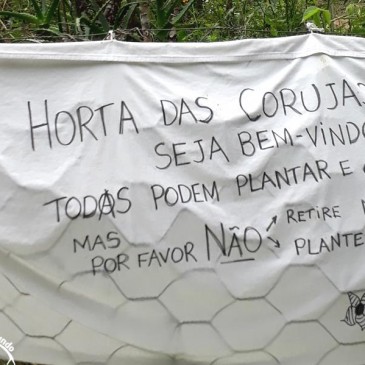 HORTA DAS CORUJAS
SEJA BEM-VINDO
TODAS PODEM PLANTAR E
MAS POR FAVOR NÃO RETIRE
PLANTE